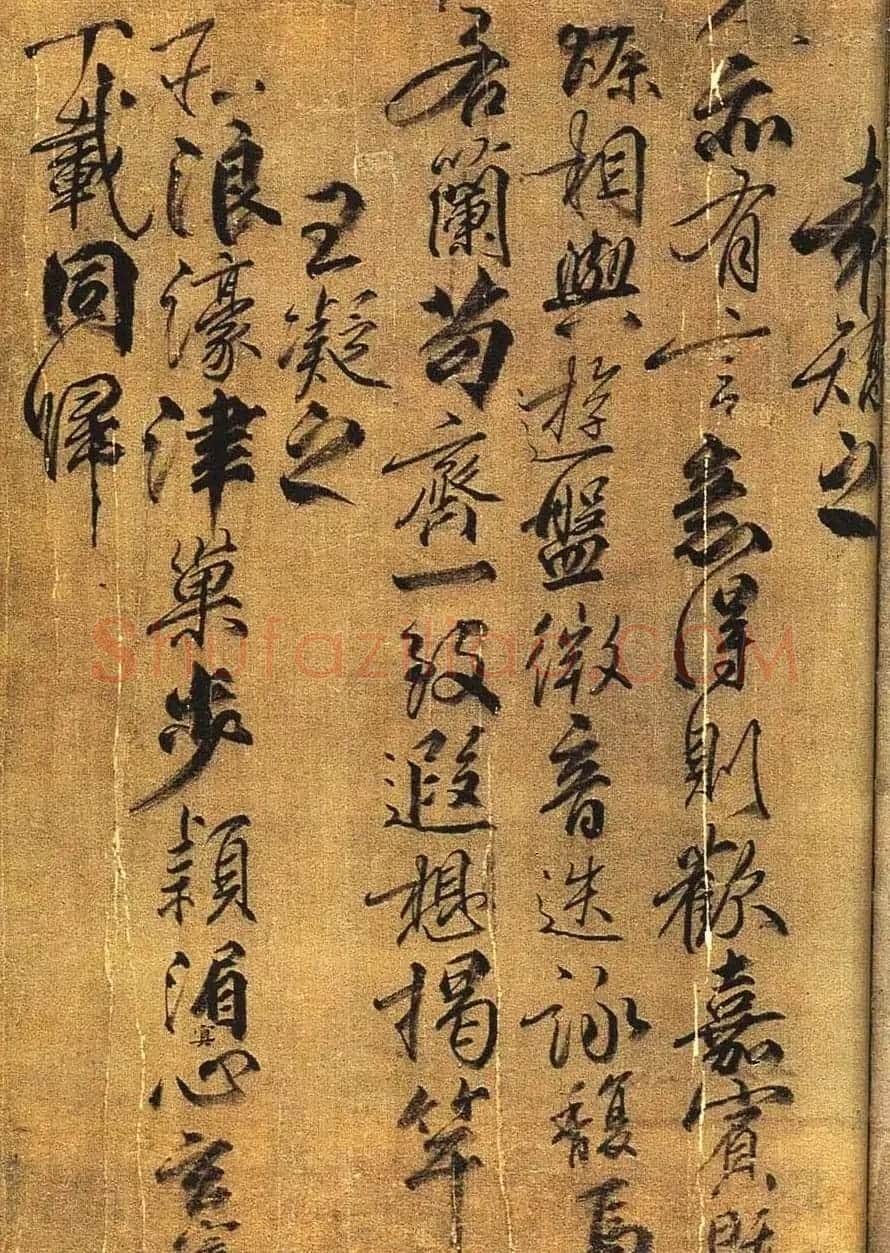 袁矯之
亦有言意得則歡嘉賓既
臻相與遊盤微音迭詠馥焉
若蘭苟齊一致遐想揭竿
王凝之
浪濠津巢步潁湄冥心玄
千載同歸
Shufazidian.COM